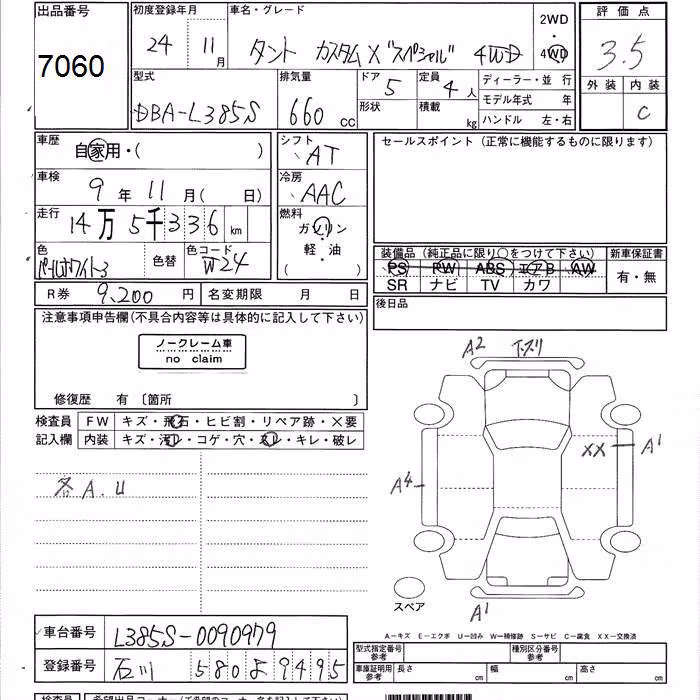 出品番号 初度登録年月 車名・グレード 2WD 評価点
7060 24 年 11 月 タント カスタムX "スペシャル" 4WD 4WD 3.5
型式 排気量 ドア 5 定員 4 人 ディーラー・並 行 外装 内装
DBA-L385S 660 cc 形状 積載 kg モデル年式 年 C
ハンドル 左・右
車歴 自家用・( ) シフト AT セールスポイント(正常に機能するものに限ります)
車検 9 年 11 月(日) 冷房 AAC
走行 14万5千336 km 燃料 ガソリン
軽・油
( )
色 パールホワイト3 色替 色コード W24
装備品(純正品に限り○をつけて下さい) 新車保証書
PS PW ABS エアB AW 有・無
SR ナビ TV カワ
R券 9,200 円 名変期限 月 日 後日品
注意事項申告欄(不具合内容等は具体的に記入して下さい)
ノークレーム車
no claim
修復歴 有 〔箇所 〕
検査員 FW キズ・飛石・ヒビ割・リペア跡・×要
記入欄 内装 キズ・汚レ・コゲ・穴・スレ・キレ・破レ
各A.U
A2 下スリ
XX A1
A4
スペア A1
A-キズ E-エクボ U-凹み W-補修跡 S-サビ C-腐食 XX-交換済
車台番号 L385S-0090979
登録番号 石川 580 よ 9495
型式指定番号 参考 種別区分番号 参考
車庫証明用 参考 長さ cm 幅 cm 高さ cm